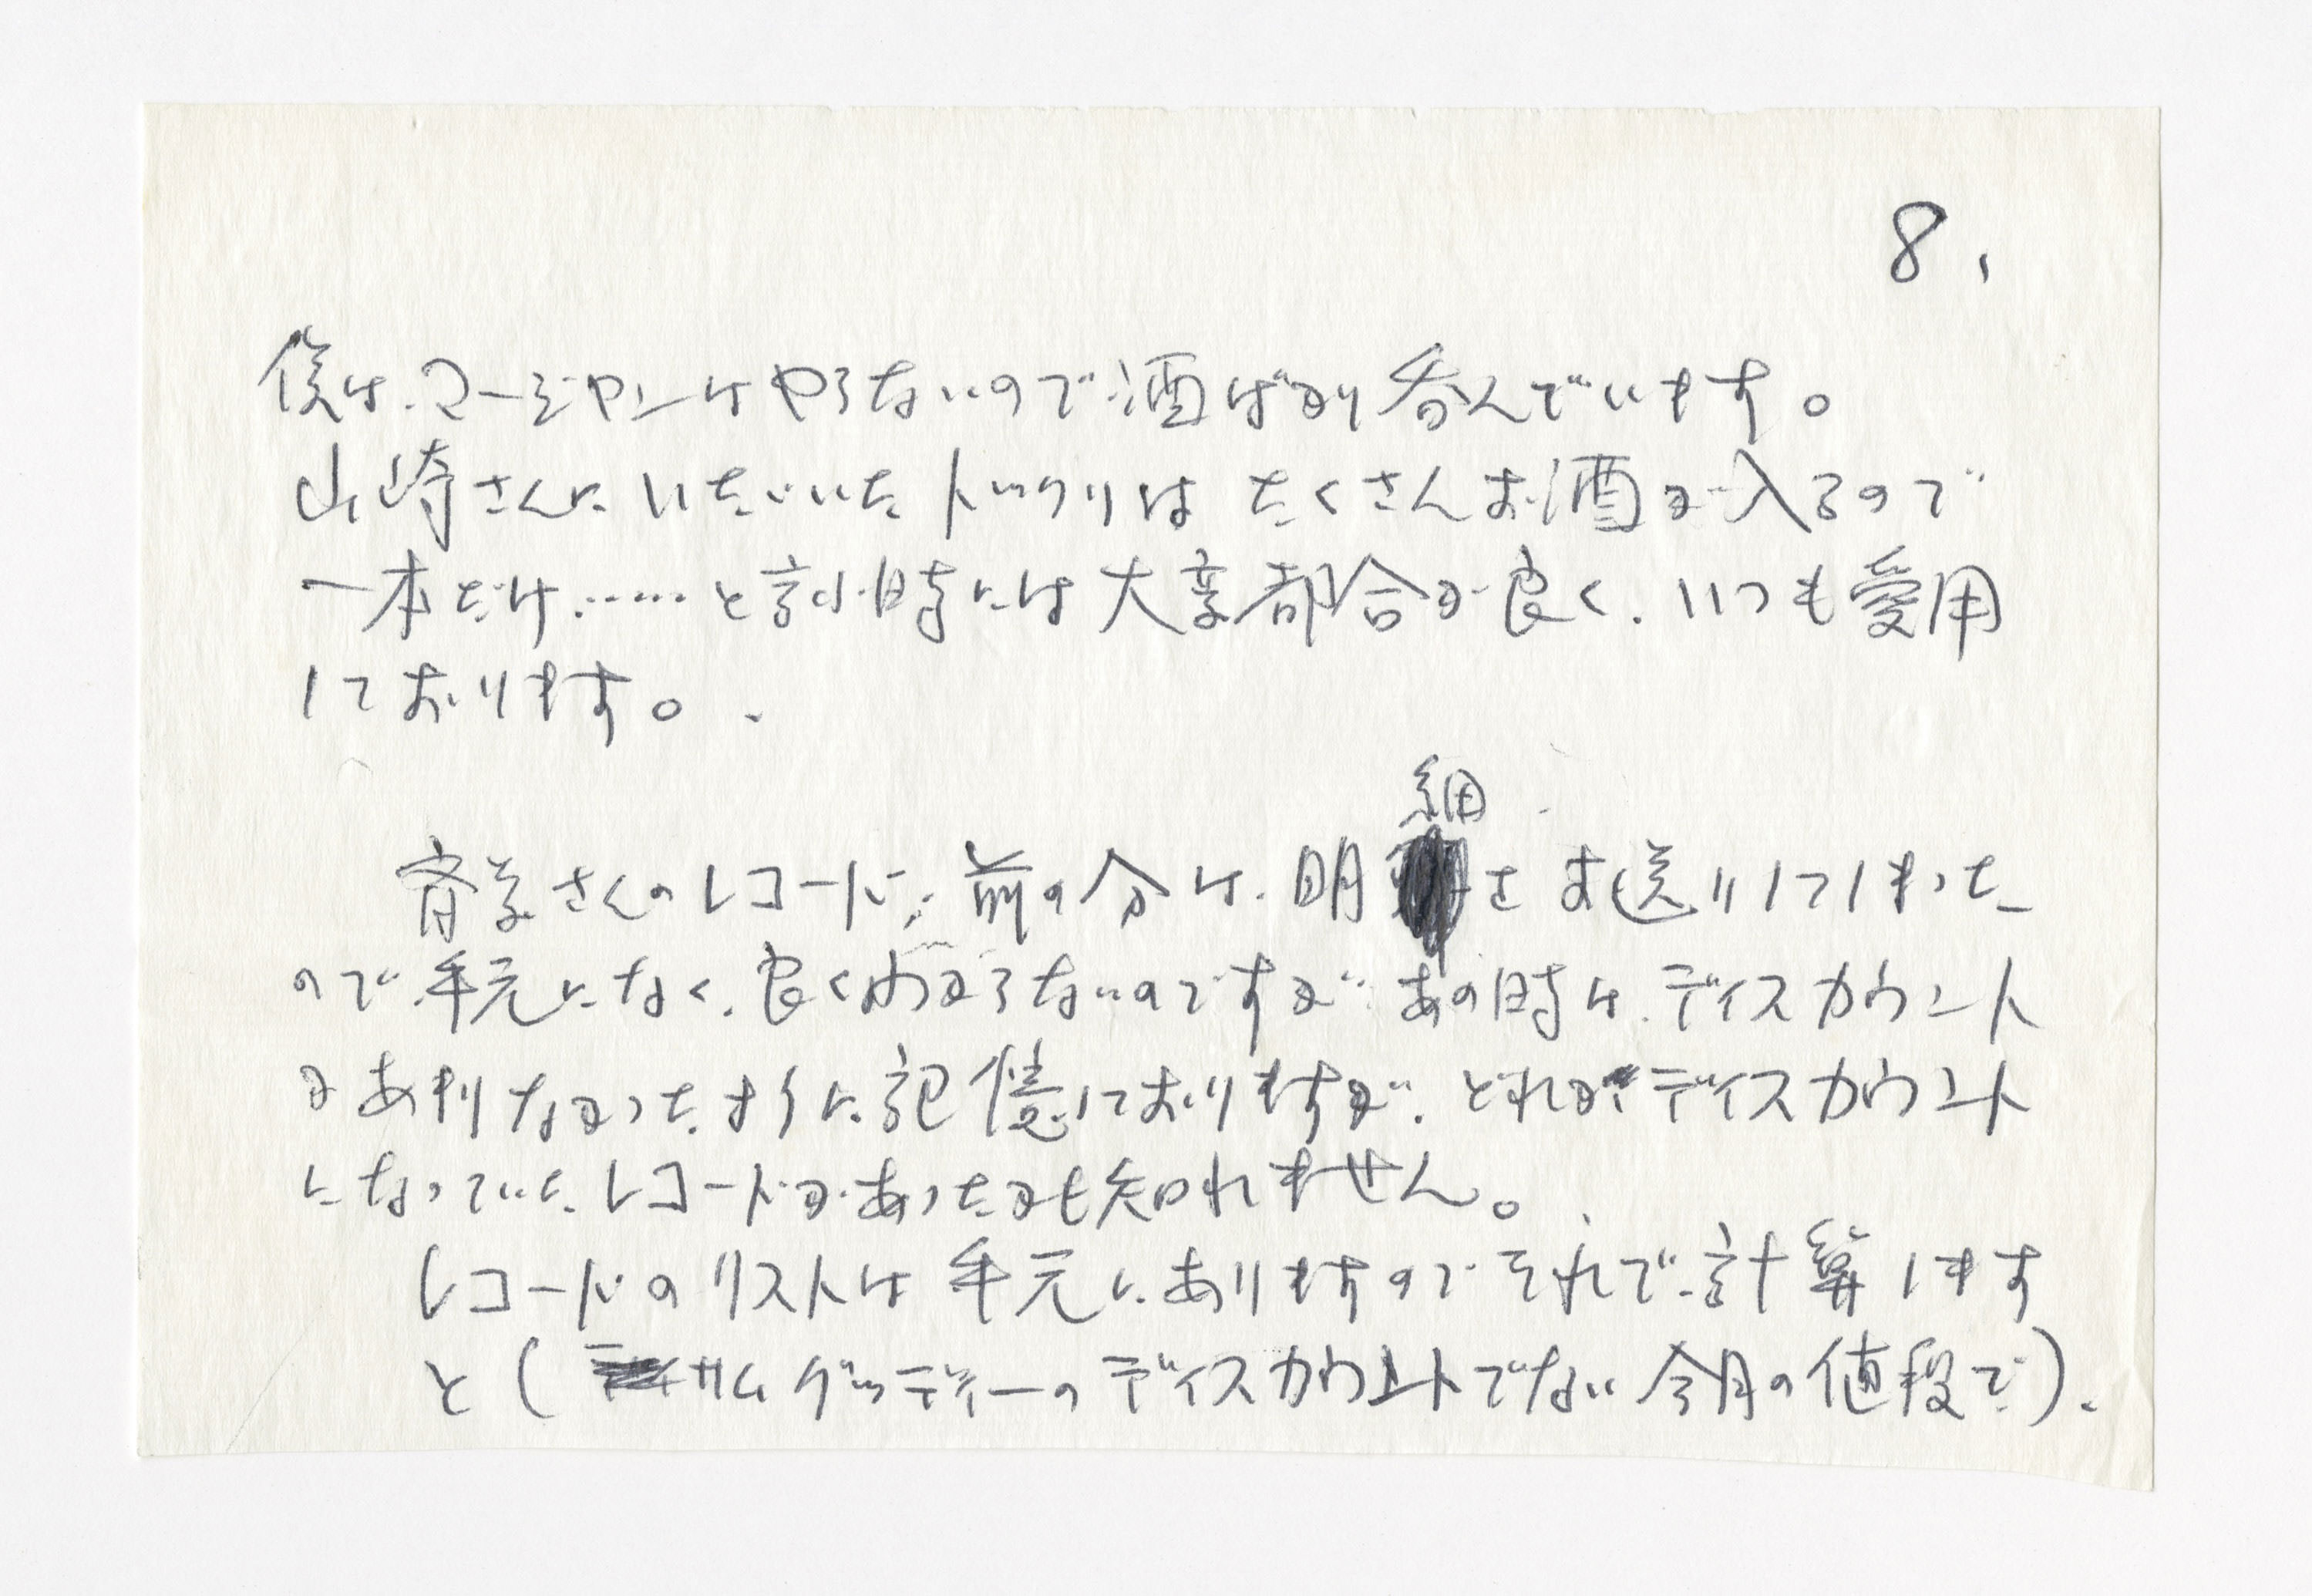 8、
僕は、マージャンはやらないので酒ばかり呑んでいます。
山崎さんにいただいたトックリはたくさんお酒が入るので
一本だけ……と言う時には大変都合が良く、いつも愛用
しております。
細
斉藤さんのレコード、前の分は、明を お送りしてしまった
ので手元になく、良くわからないのですが、あの時は、ディスカウント
があまりなかったように記憶しておりますが、どれかディスカウント
になっていたレコードがあったかも知れません。
レコードのリストは手元にありますのでそれで計算します
と(サムグッディーのディスカウントでない今月の値段で)、